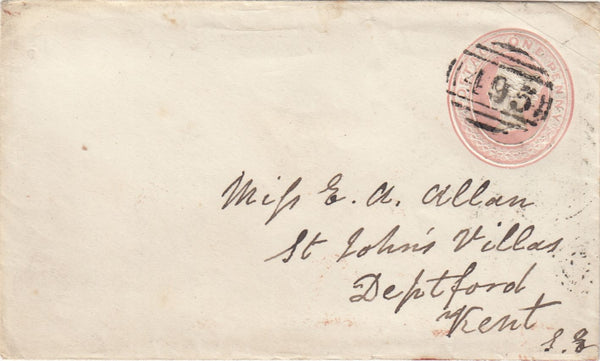 POSTAGE ONE PENNY
493
Miss E. A. Allan
St John's Villas
Deptford
Kent
S.E